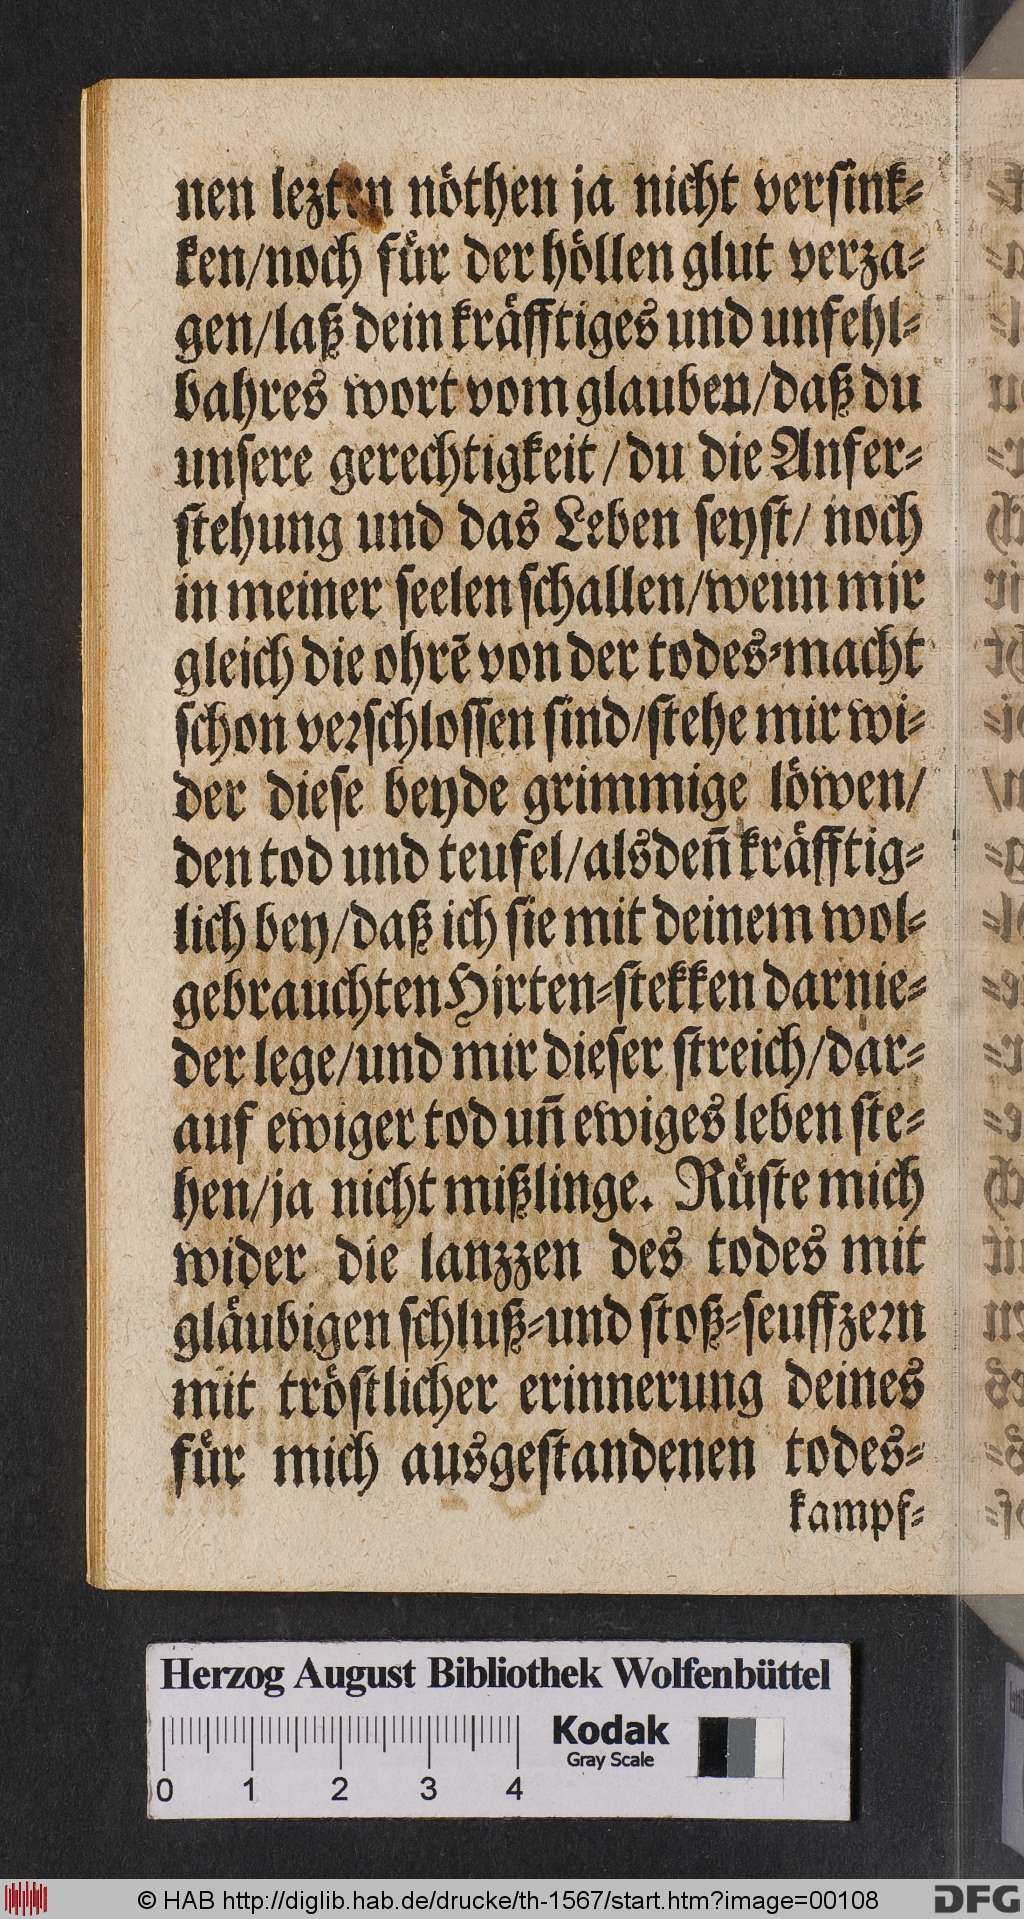 nen lezten nöthen ja nicht versink⸗
ken/noch für der höllen glut verza⸗
gen/laß dein kräfftiges und unfehl⸗
bahres wort vom glauben/daß du
unsere gerechtigkeit/du die Anfer⸗
stehung und das Leben seyst/ noch
in meiner seelen schallen/wenn mir
gleich die ohrẽ von der todes⸗macht
schon verschlossen sind/stehe mir wi⸗
der diese beyde grimmige löwen/
den tod und teufel/alsdeñ kräfftig⸗
lich bey/daß ich sie mit deinem wol⸗
gebrauchten Hirten⸗stekken darnie⸗
der lege/und mir dieser streich/dar⸗
auf ewiger tod uñ ewiges leben ste⸗
hen/ja nicht mißlinge. Rüste mich
wider die lanzzen des todes mit
gläubigen schluß⸗und stoß⸗seuffzern
mit tröstlicher erinnerung deines
für mich ausgestandenen todes⸗
kampf⸗
Herzog August Bibliothek Wolfenbüttel
Kodak
Gray Scale
0 1 2 3 4
© HAB http://diglib.hab.de/drucke/th-1567/start.htm?image=00108
DFG